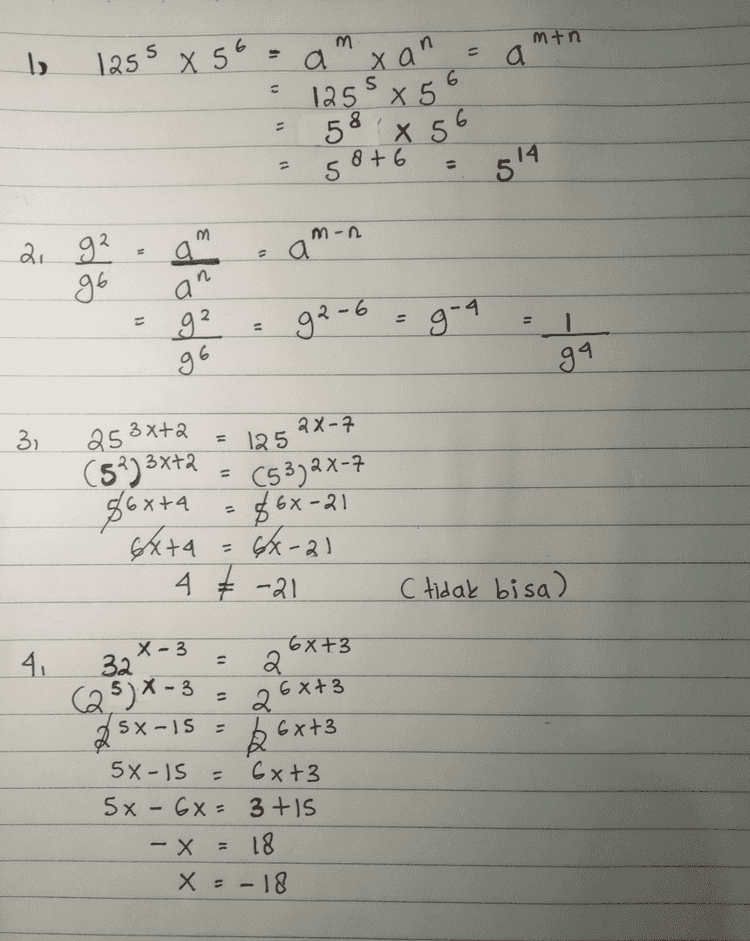 1) 125⁵ x 5⁶ = aᵐ x aⁿ = aᵐ⁺ⁿ
= 125⁵ x 5⁶
= 5⁸ x 5⁶
= 5⁸⁺⁶ = 5¹⁴
2, g²/g⁶ = aᵐ/aⁿ = aᵐ⁻ⁿ
= g²/g⁶ = g²⁻⁶ = g⁻⁴ = 1/g⁴
3, 25^(3x+2) = 125^(2x-7)
(5²)^(3x+2) = (5³)^(2x-7)
5^(6x+4) = 5^(6x-21)
6x+4 = 6x-21
4 ≠ -21 (tidak bisa)
4, 32^(x-3) = 2^(6x+3)
(2⁵)^(x-3) = 2^(6x+3)
2^(5x-15) = 2^(6x+3)
5x-15 = 6x+3
5x - 6x = 3+15
-x = 18
x = -18